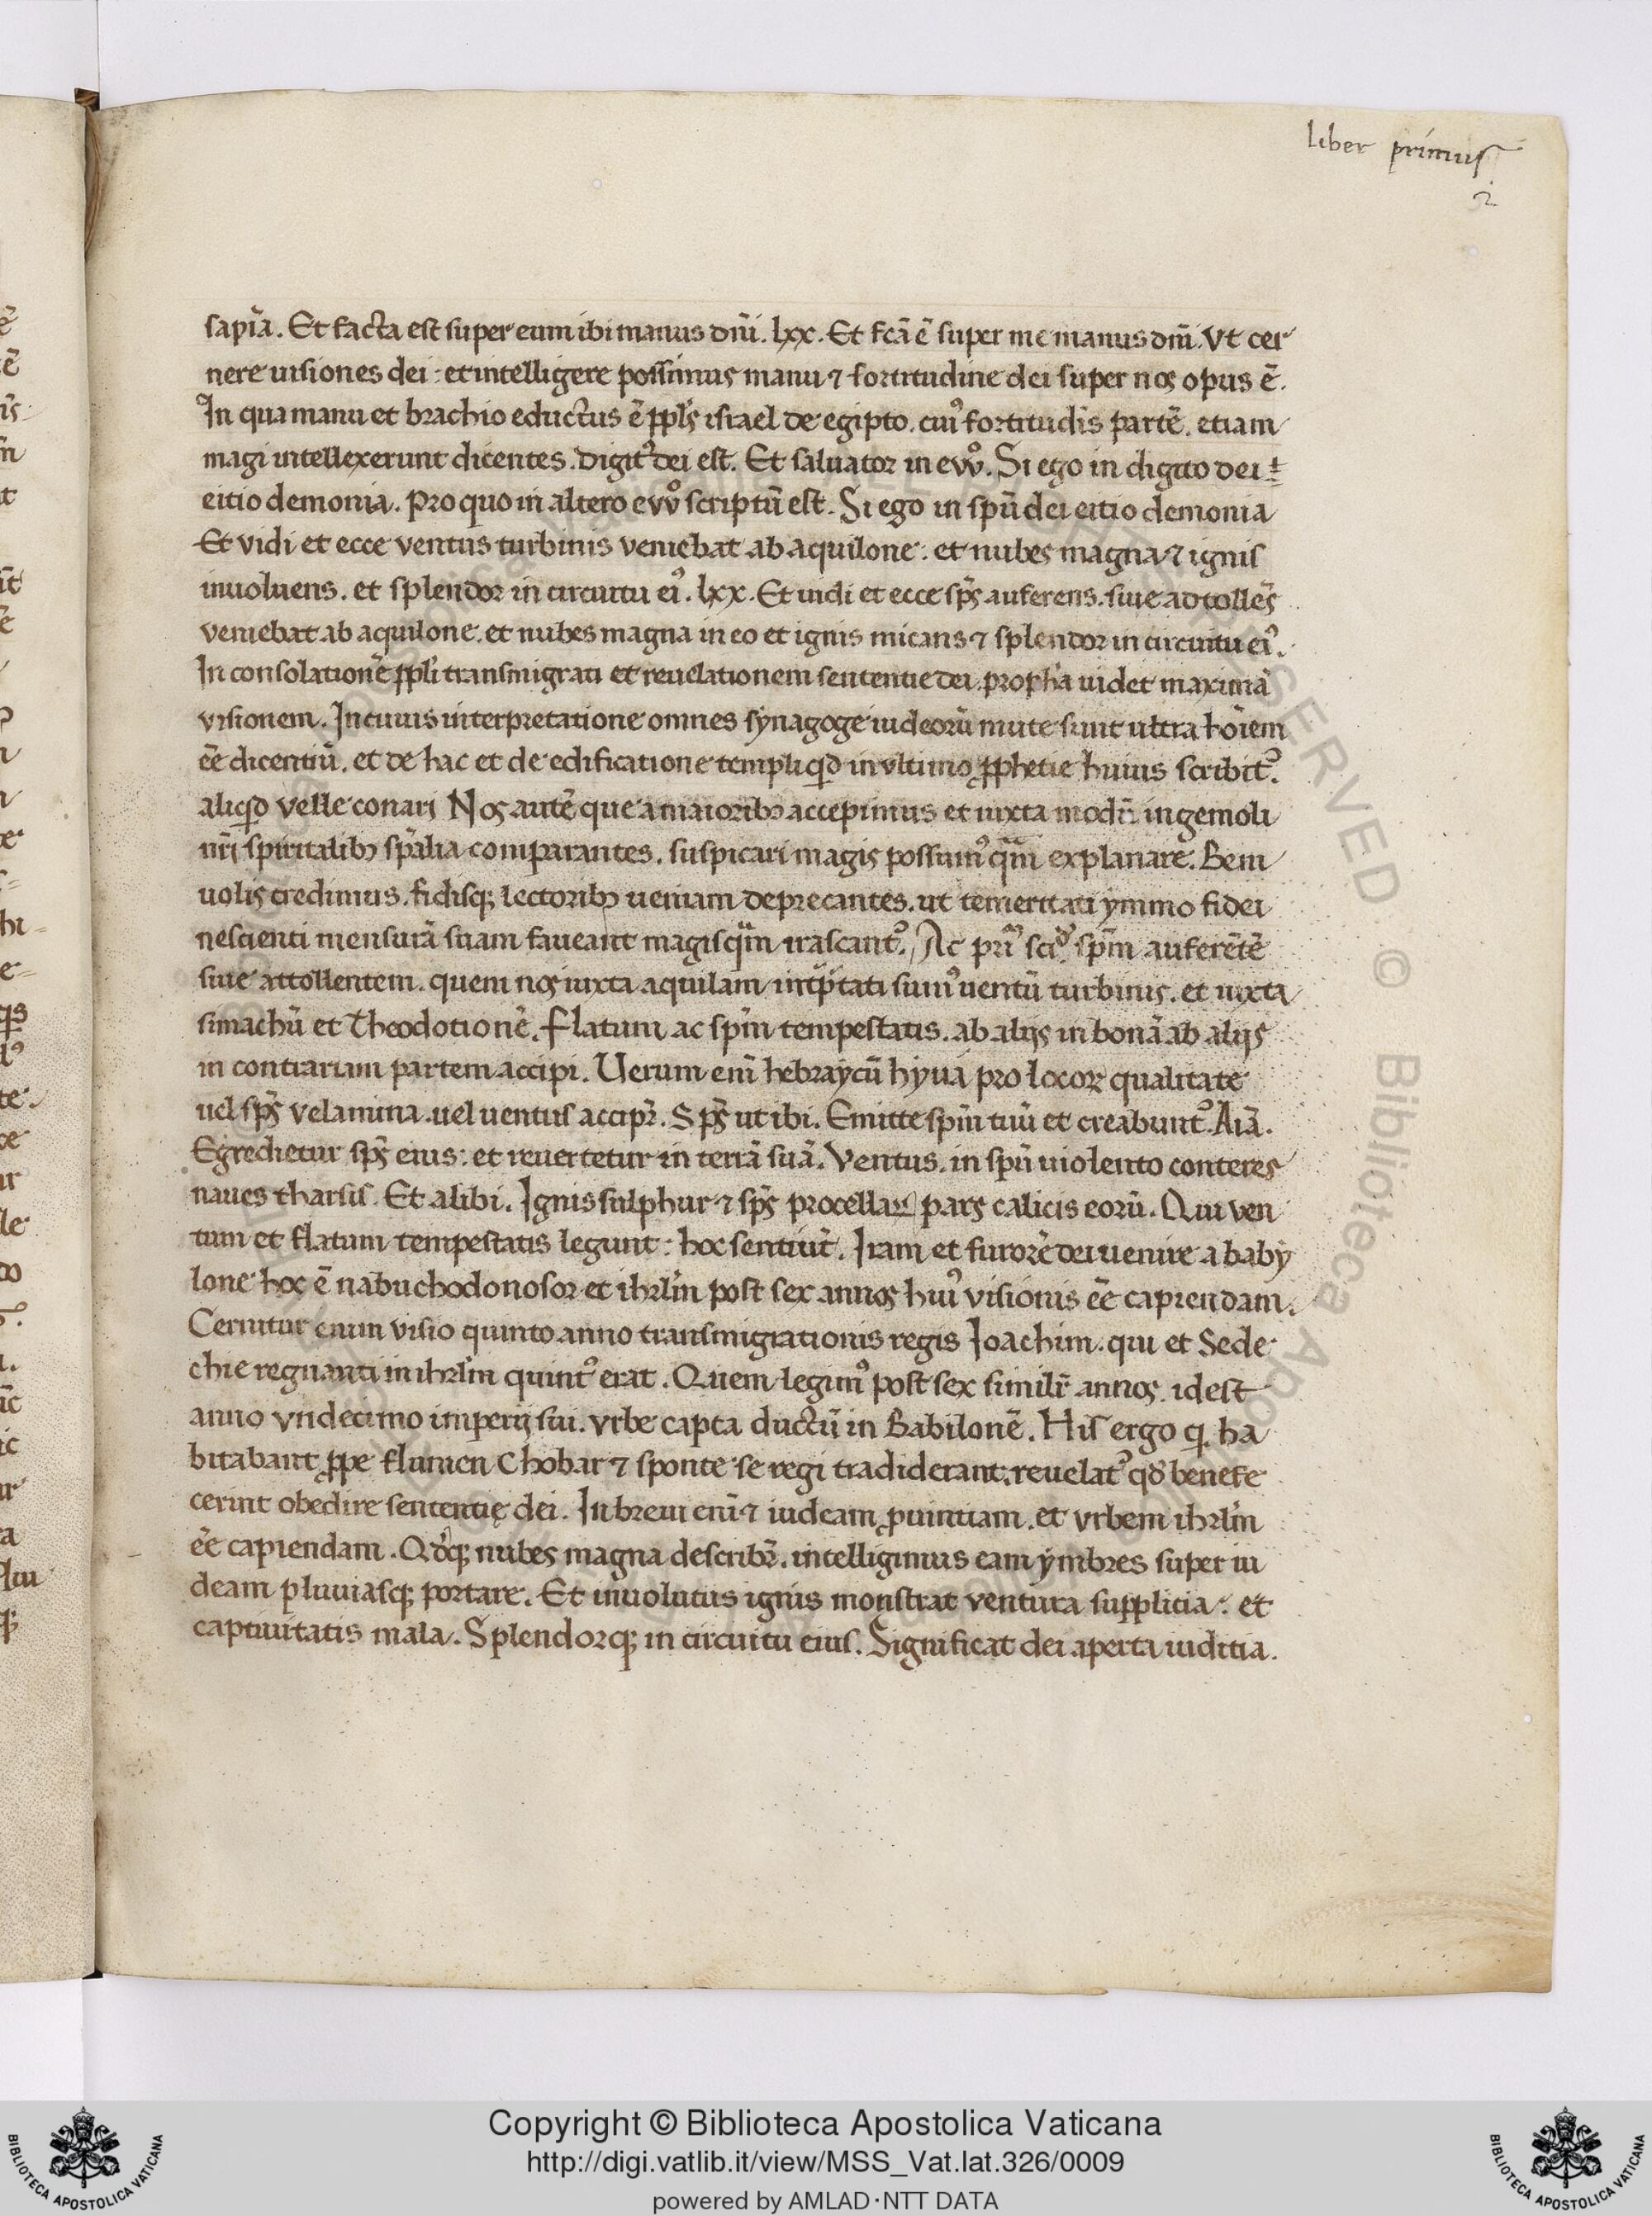 liber primus
2
sapīa. Et facta est super eum ibi manus dn̄i. lxx. Et fcā ē super me manus dn̄i. Vt cer
nere uisiones dei: et intelligere possimus manu ⁊ fortitudine dei super nos opus ē.
In qua manu et brachio eductus ē ppl̄s israel de egipto. cuiꝰ fortitudīs partē. etiam
magi intellexerunt dicentes. digitꝰ dei est. Et saluator in evv̊. Si ego in digito dei
eitio demonia. Pro quo in altero evv̊ scriptū est. Si ego in spū dei eitio demonia
Et vidi et ecce ventus turbinis veniebat ab aquilone: et nubes magna ⁊ ignis
inuoluens. et splendor in circuitu eiꝰ. lxx. Et uidi et ecce sp̄s auferens. siue adtollēs
veniebat ab aquilone. et nubes magna in eo et ignis micans ⁊ splendor in circuitu eiꝰ.
In consolationē ppl̄i transmigrati et reuelationem sententie dei. proph̄a uidet maximā
visionem. In cuius interpretatione omnes synagoge iudeorū mute sunt ultra hōiem
eē dicentiū. et de hac et de edificatione templi qd̄ in vltimo ꝓphetie huius scribitꝰ.
aliqd̄ velle conari Nos autē que a maioribꝫ accepimus et iuxta modū ingenioli
nr̄i spiritalibꝫ spālia comparantes. suspicari magis possumꝰ qm̄ explanare. Beni
uolis credimus. fidisqꝫ lectoribꝫ ueniam deprecantes. ut temeritati ymmo fidei
nescienti mensurā suam faueant magis qm̄ irascantꝰ. Ac scꝺꝫ spm̄ auferētē
siue attollentem. quem nos iuxta aquilam int̄p̄tati sumꝰ uentū turbinis. et iuxta
simachū et Theodotionē. flatum ac spm̄ tempestatis. ab alijs in bonā ab alijs
in contrariam partem accipi. Uerum enī hebraycū hyua pro locoꝝ qualitate
uel sp̄s vel anima uel uentus accipr̄. Sp̄s ut ibi. Emitte spm̄ tuū et creabuntꝰ. Aīā.
Egredietur sp̄s eius: et reuertetur in terrā suā. Ventus. in spū uiolento conteres
naues tharsis. Et alibi. Ignis sulphur ⁊ sp̄s procellaꝝ pars calicis eorū. Qui ven
tum et flatum tempestatis legunt: hoc sentiūt. Iram et furorē dei uenire a baby
lone hoc ē nabuchodonosor et ihrl̄m post sex annos huiꝰ visionis eē capiendam.
Cernitur enim visio quinto anno transmigrationis regis Ioachim. qui et Sede
chie regnanti in ihrl̄m quintꝰ erat. Quem legimꝰ post sex similr̄ annos. idest
anno vndecimo imperij sui. vrbe capta ductū in Babilonē. His ergo q. ha
bitabant ꝓpe flumen Chobar ⁊ sponte se regi tradiderant. reuelatꝰ qd̄ benefe
cerint obedire sententię dei. In breui enī ⁊ iudeam ꝓuintiam. et vrbem ihrl̄m
eē capiendam. Qd̄qꝫ nubes magna describr̄. intelligimus eam ymbres super iu
deam pluuiasqꝫ portare. Et inuolutus ignis monstrat ventura supplicia: et
captiuitatis mala. Splendorqꝫ in circuitu eius. Significat dei aperta iuditia.
Copyright © Biblioteca Apostolica Vaticana
http://digi.vatlib.it/view/MSS_Vat.lat.326/0009
powered by AMLAD·NTT DATA
BIBLIOTECA APOSTOLICA VATICANA
BIBLIOTECA APOSTOLICA VATICANA